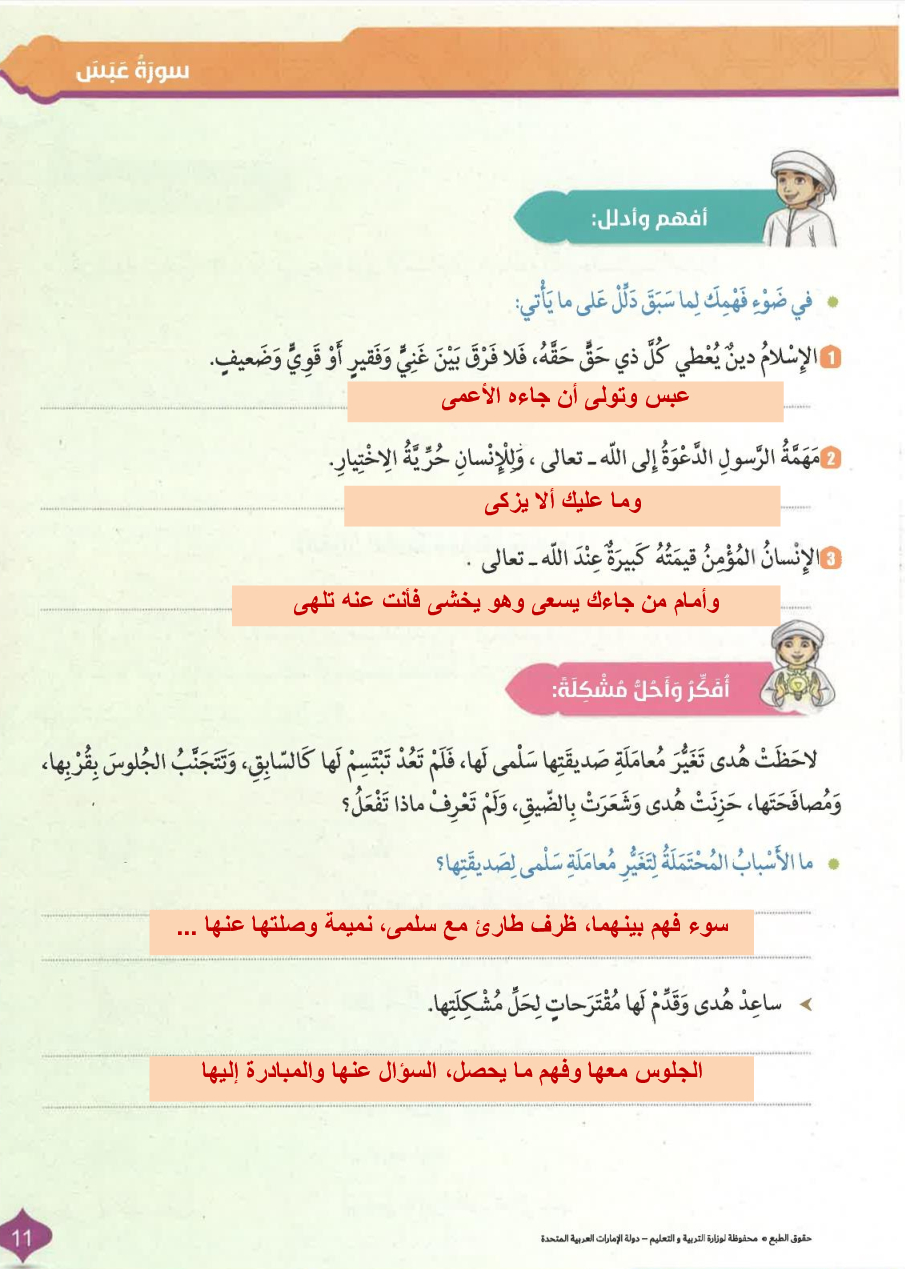 سورَةُ عَبَسَ
أفهم وأدلل:
• في ضَوْءِ فَهْمِكَ لِما سَبَقَ دَلِّلْ عَلى ما يَأْتي:
1 الإِسْلامُ دينٌ يُعْطي كُلَّ ذي حَقٍّ حَقَّهُ، فَلا فَرْقَ بَيْنَ غَنِيٍّ وَفَقيرٍ أَوْ قَوِيٍّ وَضَعيفٍ.
عبس وتولى أن جاءه الأعمى
2 مَهَمَّةُ الرَّسولِ الدَّعْوَةُ إِلى اللّه ـ تعالى ، وَلِلْإِنْسانِ حُرِّيَّةُ الِاخْتِيارِ.
وما عليك ألا يزكى
3 الإِنْسانُ المُؤْمِنُ قيمَتُهُ كَبيرَةٌ عِنْدَ اللّه ـ تعالى .
وأمام من جاءك يسعى وهو يخشى فأنت عنه تلهى
أُفَكِّرُ وَأَحُلُّ مُشْكِلَةً:
لاحَظَتْ هُدى تَغَيُّرَ مُعامَلَةِ صَديقَتِها سَلْمى لَها، فَلَمْ تَعُدْ تَبْتَسِمْ لَها كَالسّابِقِ، وَتَتَجَنَّبُ الجُلوسَ بِقُرْبِها،
وَمُصافَحَتَها، حَزِنَتْ هُدى وَشَعَرَتْ بِالضّيقِ، وَلَمْ تَعْرِفْ ماذا تَفْعَلُ؟
• ما الأَسْبابُ المُحْتَمَلَةُ لِتَغَيُّرِ مُعامَلَةِ سَلْمى لِصَديقَتِها؟
سوء فهم بينهما، ظرف طارئ مع سلمى، نميمة وصلتها عنها ...
ساعِدْ هُدى وَقَدِّمْ لَها مُقْتَرَحاتٍ لِحَلِّ مُشْكِلَتِها.
الجلوس معها وفهم ما يحصل، السؤال عنها والمبادرة إليها
حقوق الطبع © محفوظة لوزارة التربية و التعليم – دولة الإمارات العربية المتحدة
11